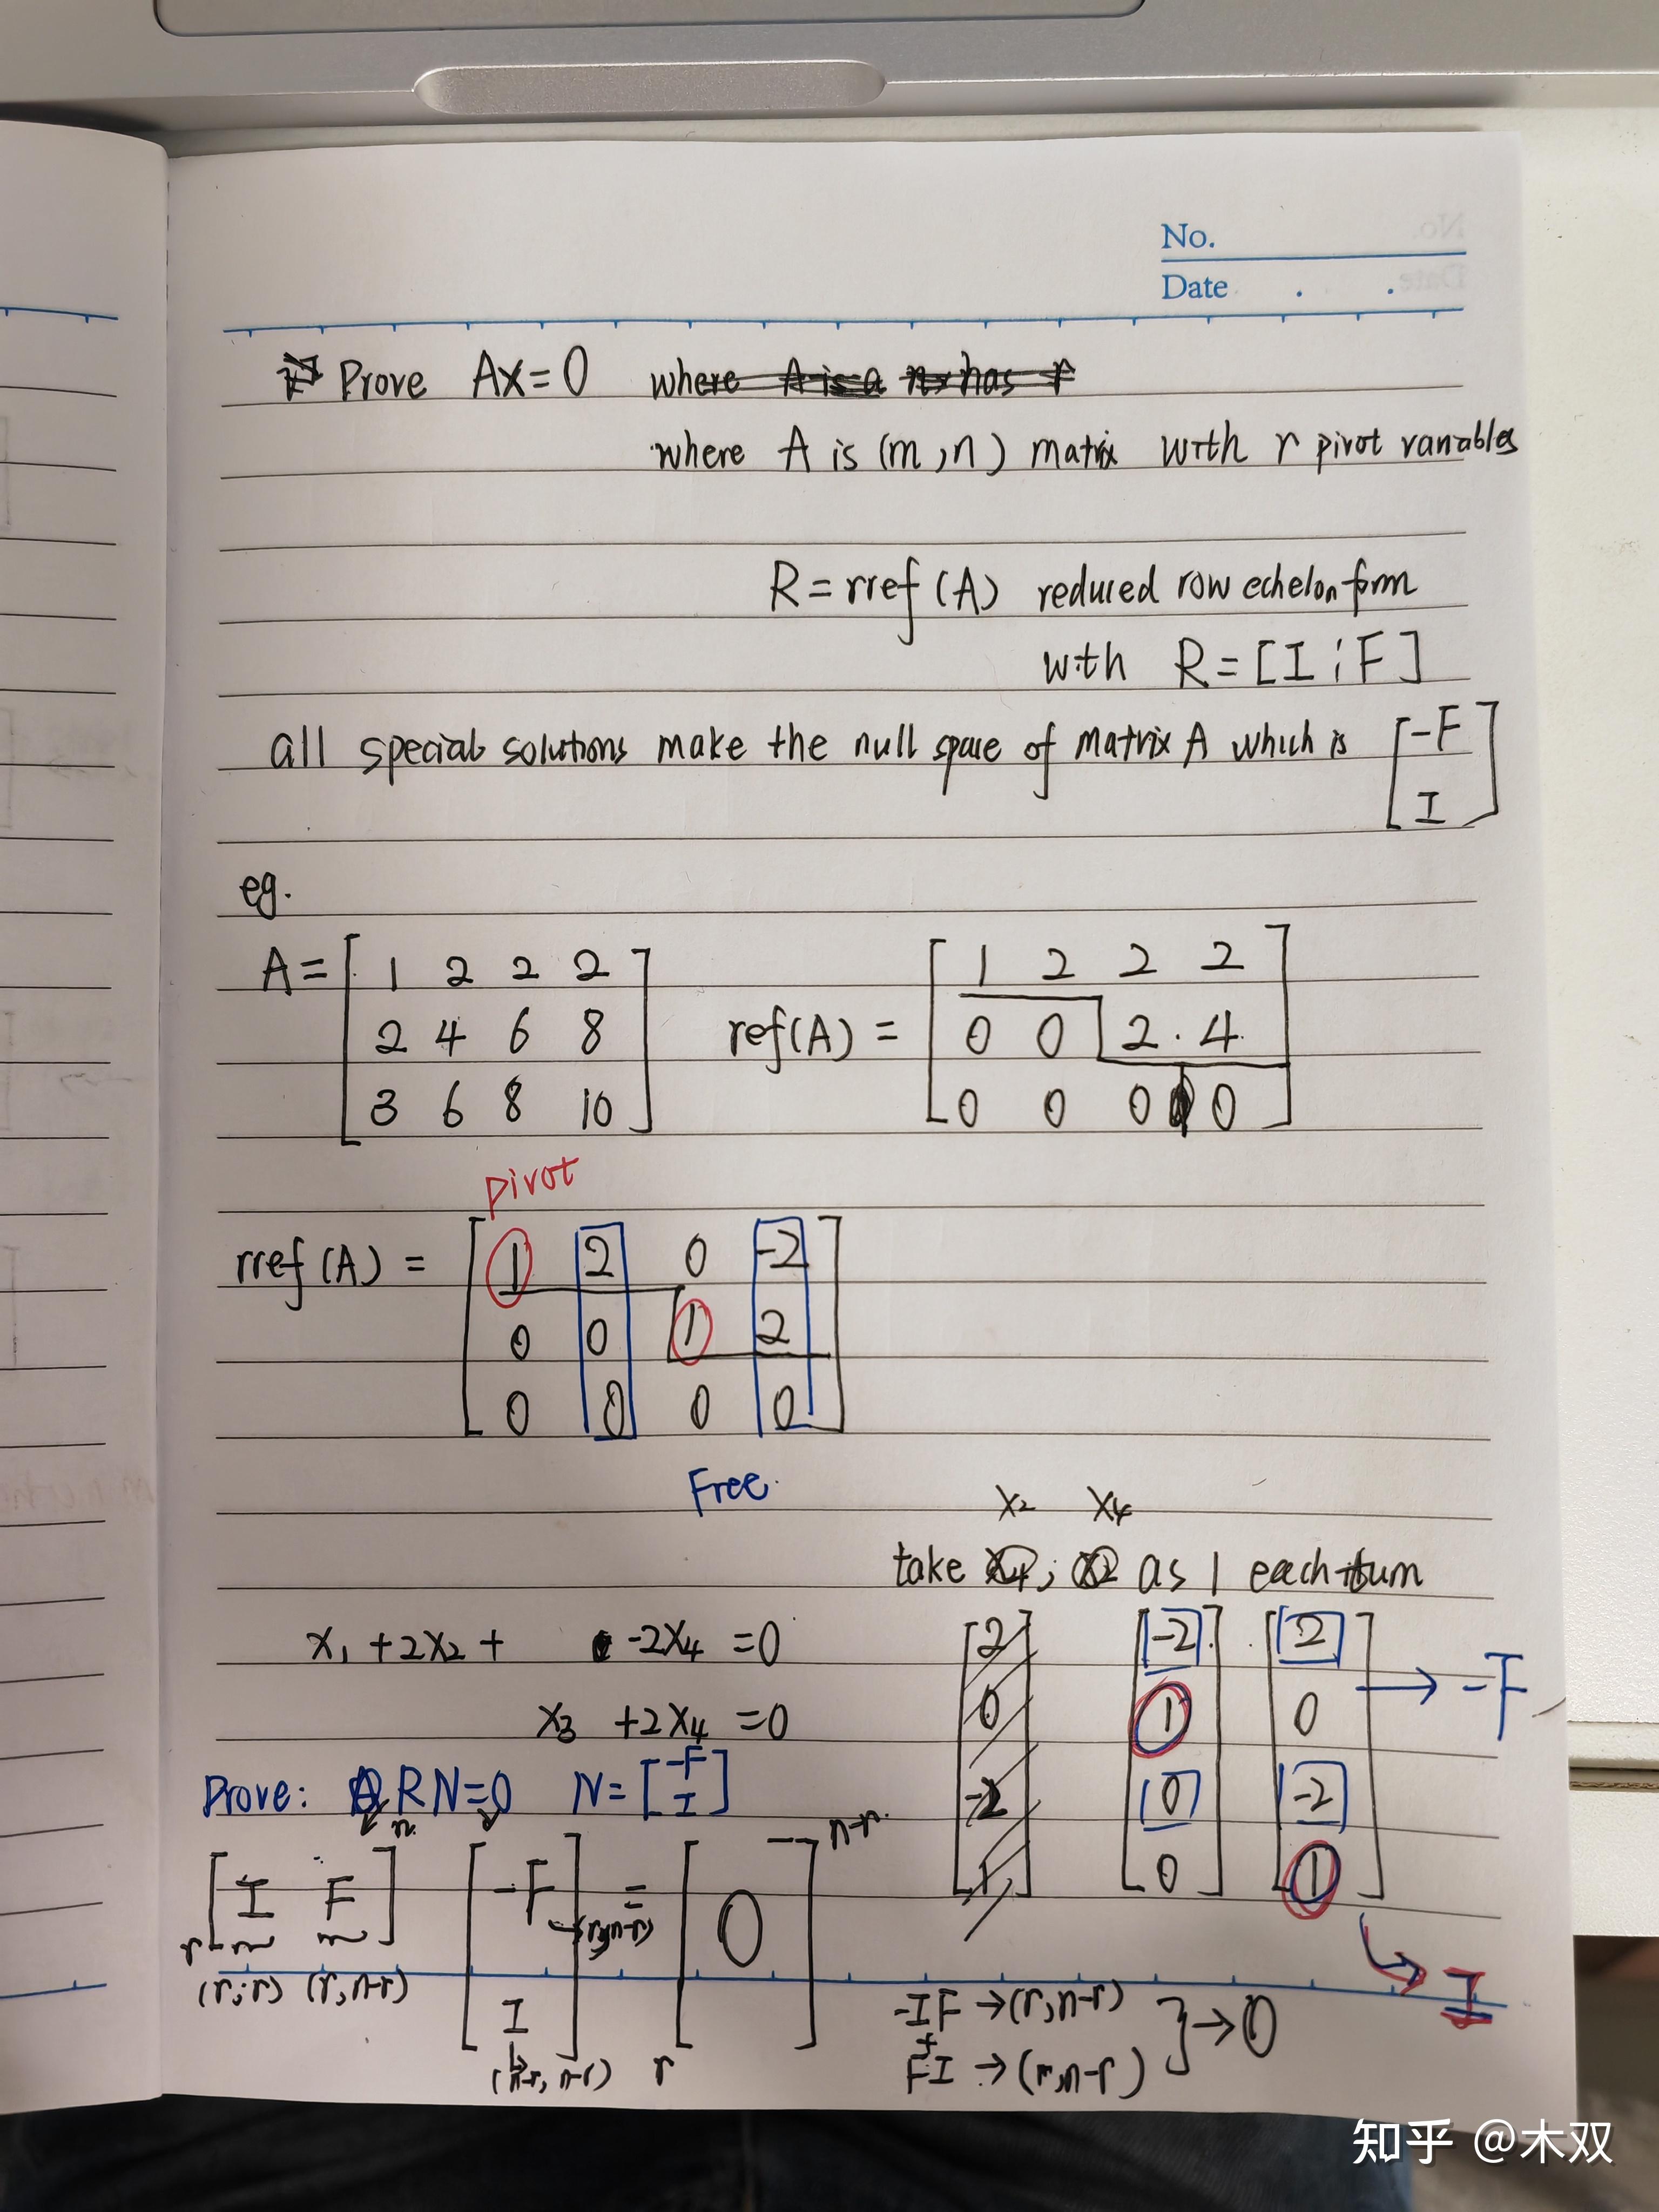 No.
Date . .
Prove AX=0 where A is a has r
where A is (m,n) matrix with r pivot variables
R=rref(A) reduced row echelon form
with R=[I ¦ F]
all special solutions make the null space of matrix A which is [-F
I]
eg.
A= [1 2 2 2
2 4 6 8
3 6 8 10]
ref(A) = [1 2 2 2
0 0 2 4
0 0 0 0]
pivot
rref(A) = [1 2 0 -2
0 0 1 2
0 0 0 0]
Free
x2 x4
take x4; x2 as 1 each turn
x1 +2x2 + -2x4 =0
x3 +2x4 =0
[2
0
-2
1]
[-2
1
0
0]
[2
0
-2
1]
→ -F
→ I
Prove: RN=0 N=[-F
I]
n
r [I F] [-F
I] = [0] n-r
r
(r,r) (r,n-r)
(r,n-r)
(n-r, n-r)
-IF →(r,n-r)
+
FI →(r,n-r)
} → 0
知乎 @木双